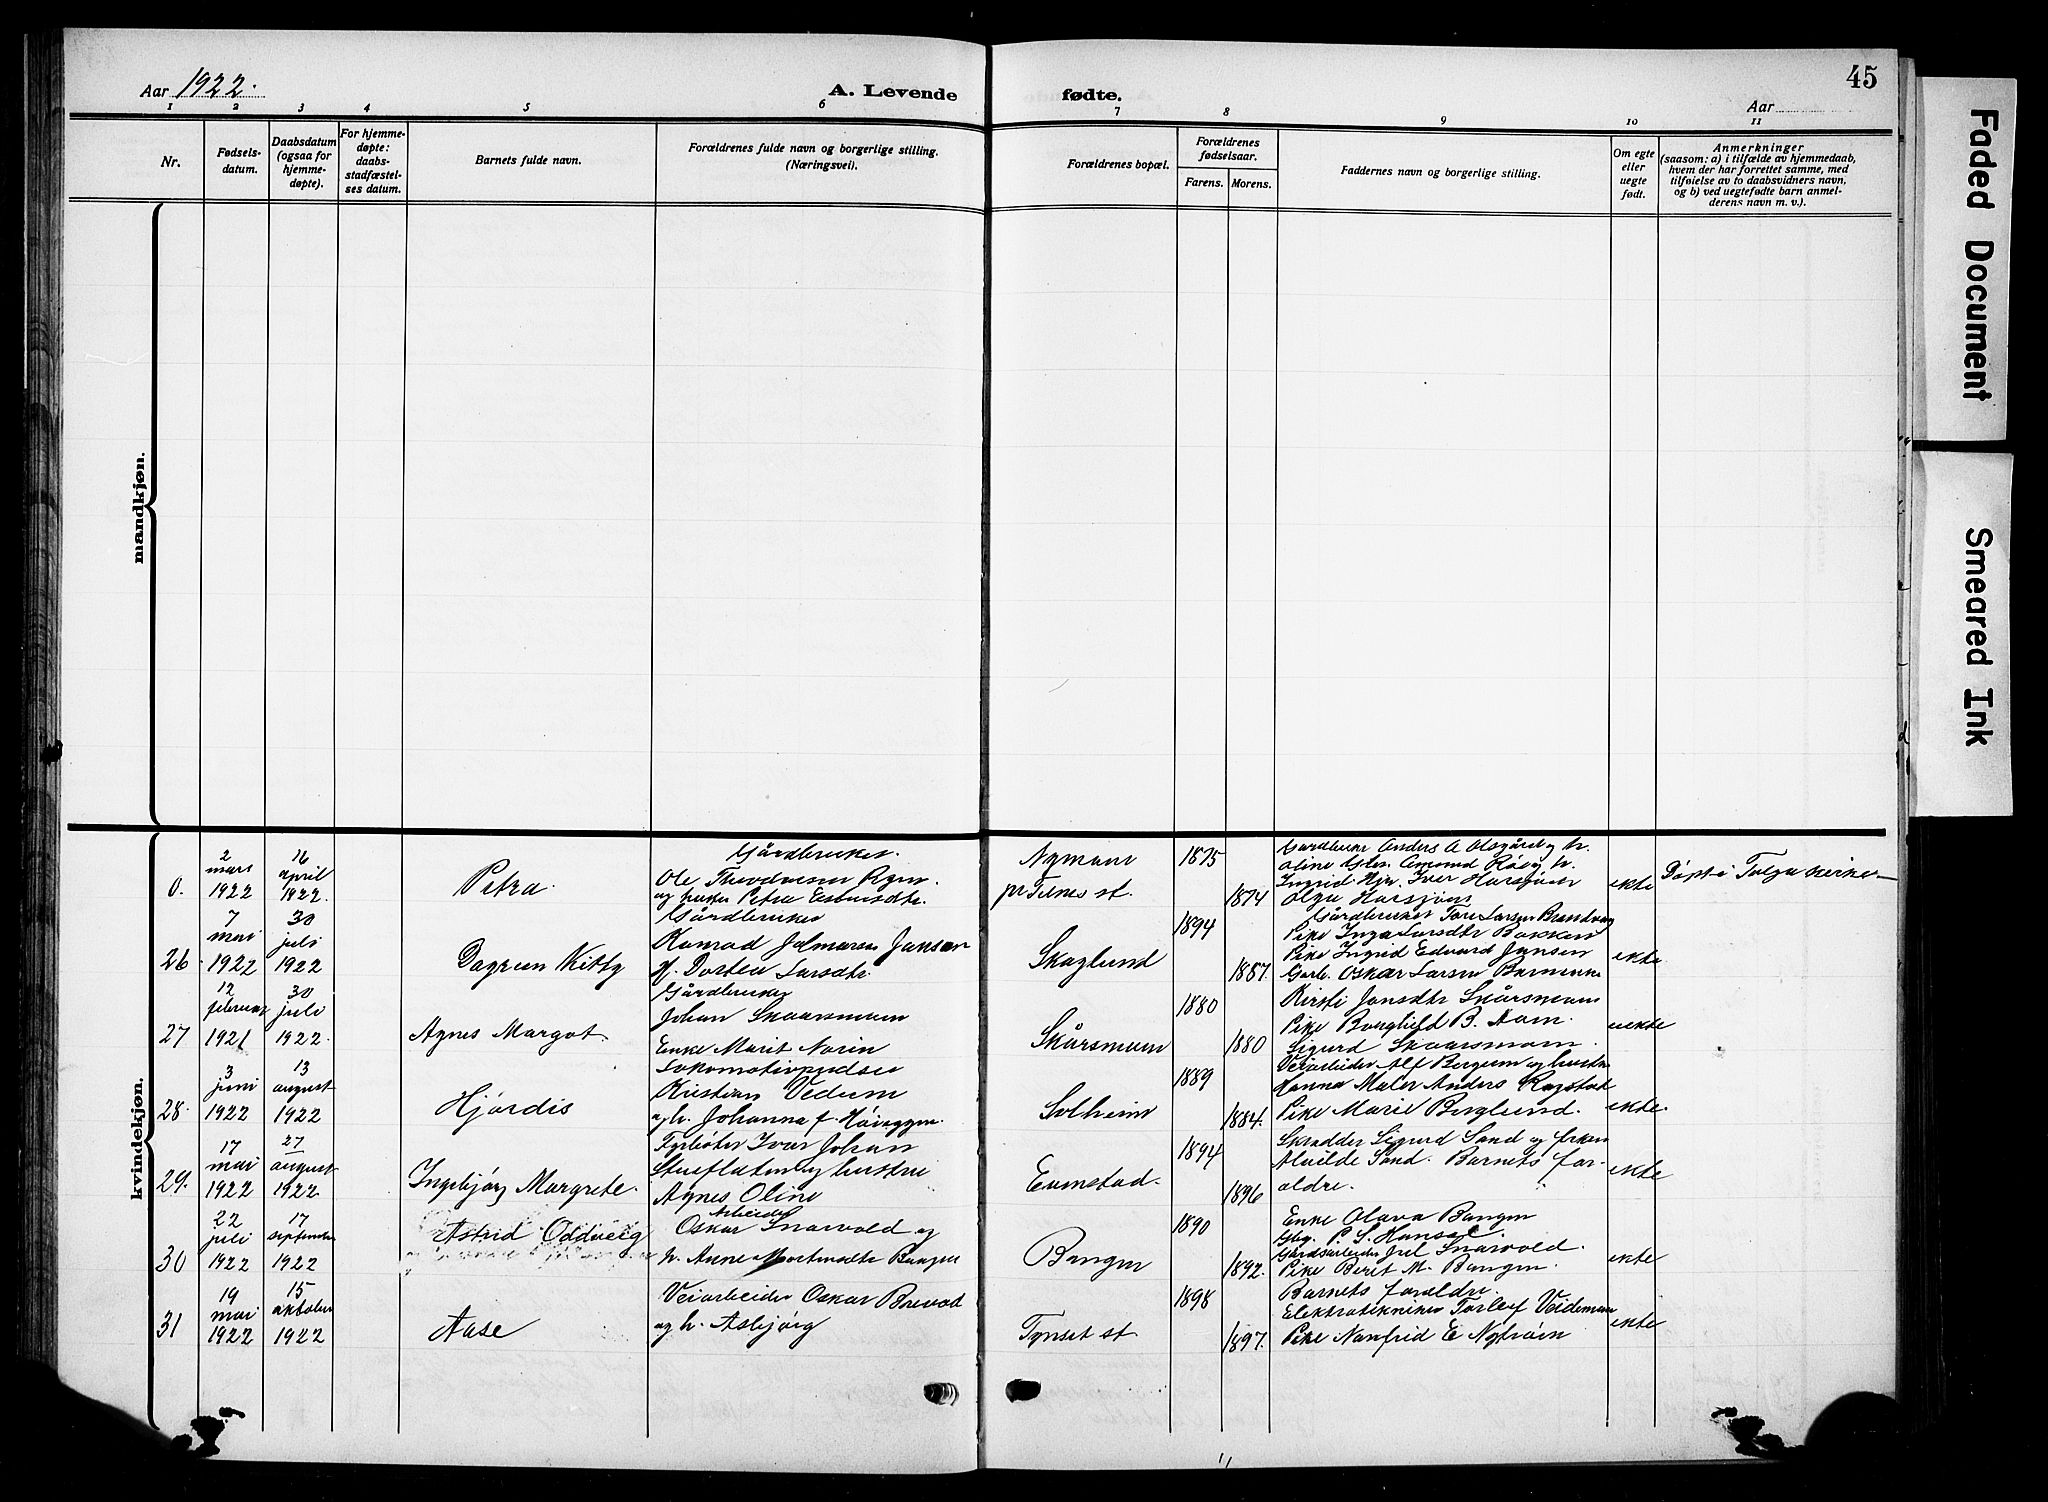 Aar 1922.
A. Levende
fødte.
45
Aar
1
2
3
4
5
6
7
8
9
10
11
Nr.
Fødsels-
datum.
Daabsdatum
(ogsaa for
hjemme-
døpte).
For hjemme-
døpte:
daabs-
stadfæstel-
ses datum.
Barnets fulde navn.
Forældrenes fulde navn og borgerlige stilling.
(Næringsvei).
Forældrenes bopæl.
Forældrenes
fødselsaar.
Farens.
Morens.
Faddernes navn og borgerlige stilling.
Om egte
eller
uegte
født.
Anmerkninger
(saasom: a) i tilfælde av hjemmedaab,
hvem der har forrettet samme, med
tilføielse av to daabsvidners navn,
og b) ved uegtefødte barn anmel-
derens navn m. v.).
mandkjøn.
kvindekjøn.
0.
2
mars
1922
16
april
1922.
Petra.
Gårdbruker.
Ole
og hustru Petra
1875
1874
Olga Harsjøen
ekte
Døpt i Tolga kirke
26
7
mai
1922
30
juli
1922
Dagrun Kitty
Gårdbruker
Konrad Jansen
H. Dortea Larsdtr.
Skoglund
1894
1887.
Gårdbruker Tore Larsen
Pike Inga Larsdtr Bakken
Pike Ingrid Edvard Jansen
Oskar Larsen
ekte
27
12
februar
1921
30
juli
1922.
Agnes Margot.
Gårdbruker
Johan Skaarsmoen
Enke Marit Norin
Skårsmoen
1880
1880
Kirsti Jonsdtr Skårsmoen
Pike Borghild B. Aam.
Sigurd Skaarsmoen.
uekte
28.
3
juni
1922
13
august
1922
Hjørdis
Lokomotivpudser
Kristian Vedum
og h. Johanna f.
Solheim
1889
1884.
Veiarbeider Alf Bergum og hustru
Hanna Maler Anders
Pike Marie Berglund.
ekte.
29.
17
mai
1922
27
august
1922.
Ingebjørg Margrete.
Fyrbøter Ivar Johan
Stueflaten og hustru
Agnes Oline
Evenstad.
1894
1896
Skredder Sigurd Sand og frken
Alvilde Sand. Barnets for-
ældre.
ekte
30
22
juli
1922
17
september
1922
Astrid Oddveig
Arbeider
Oskar Snarvold og
h. Anne Mortensdtr Bangen
Bangen
1890
1892.
Enke Olava Bangen
Gbg. P. S. Hansæl.
Gårdsarbeider Snarvold.
Pike Berit M. Bangen.
ekte
31
19
mai
1922
15
oktober
1922
Aase
Veiarbeider Oskar Brevad
og h. Asbjørg
Tynset st
1898
1897.
Barnets forældre.
Elektrotekniker Torleif Veideman
Pike Nanfrid E Nytrøen
ekte
Faded Document
Smeared Ink